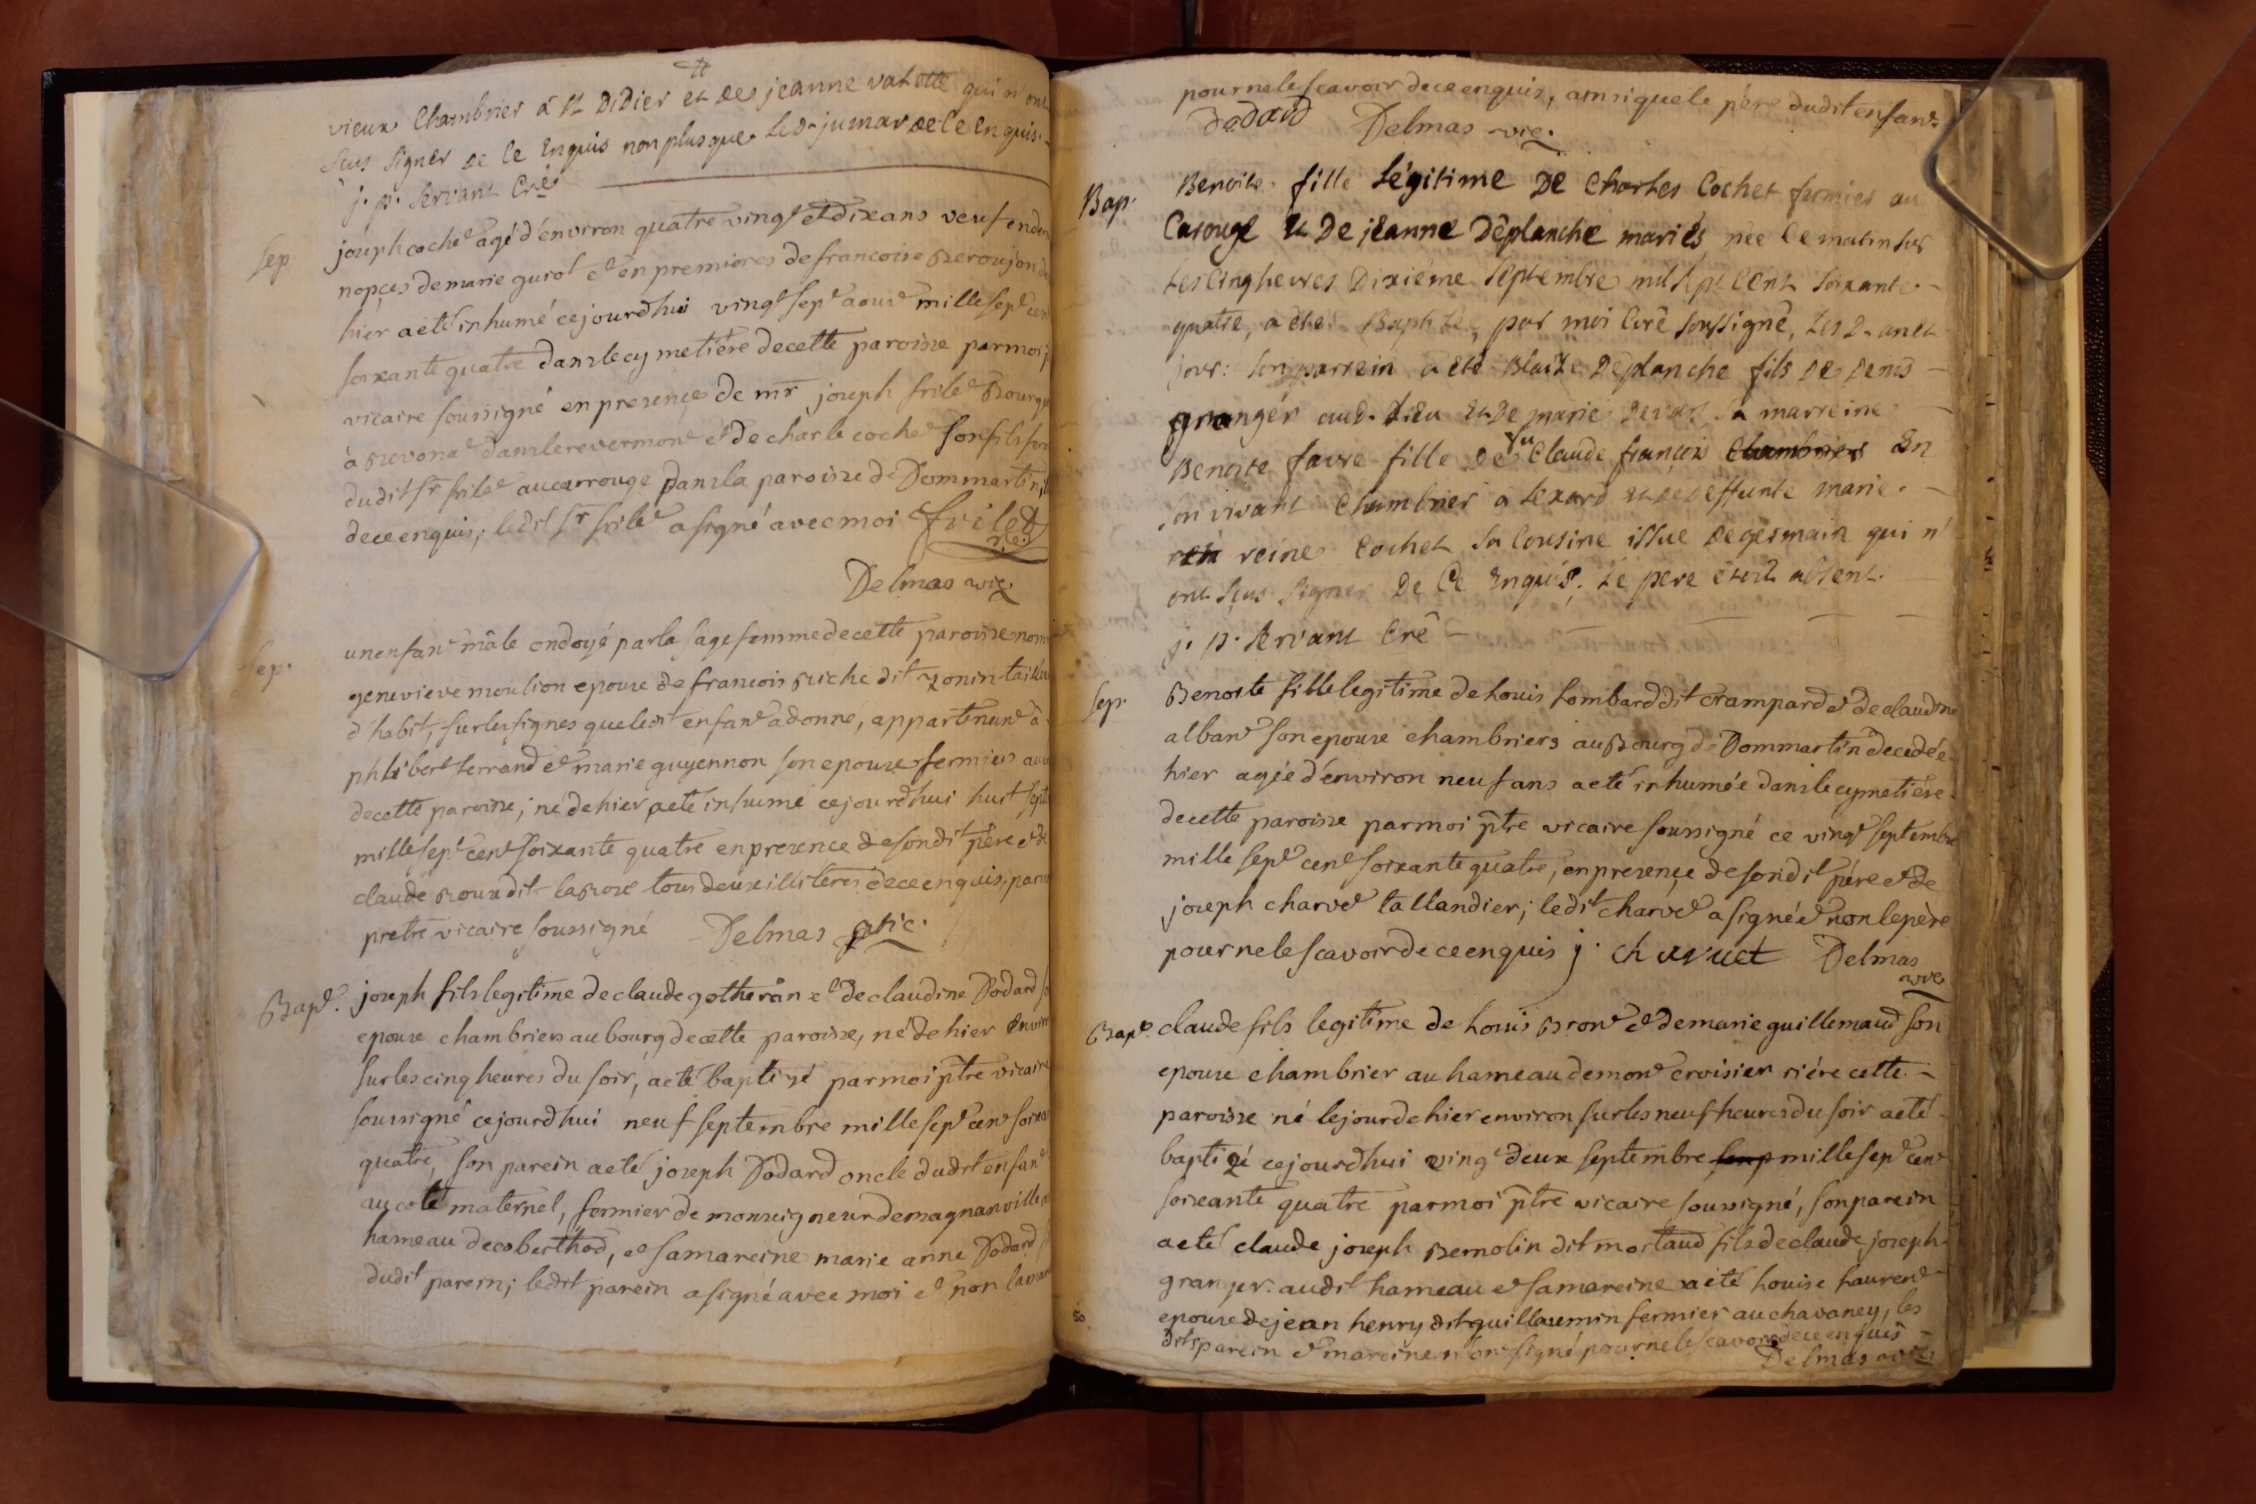 vieux Chambrier â st Didier et de jeanne vatette qui n'ont
sçus signer de ce Enquis non plus que led. jumar de ce enquis.
j. p. servant Cré
Sep. joseph cochet agé d'environ quatre vingt et dix ans veuf en
nopces de marie gurot et en premieres de francoise
hier a eté inhumé cejourdhui vingt sept aoust mille sept cent
soixante quatre dans le cymetiére de cette paroisse par moi
vicaire soussigné en presence de mr joseph frilet Bourg
à Buvona dans le revermont et de charle cochet son fils
dudit sr frilet au carrouge dans la paroisse de Dommartin
de ce enquis; ledit sr frilet a signé avec moi frilet
Delmas vic.
Sep. un enfant mâle ondoyé par la sage femme de cette paroisse
genevieve moulion epouse de francois dit zonin
d'habit, sur les signes que ledit enfant a donné, appartenant à
philibert ferrand et marie guyennon son epouse fermiers
de cette paroisse; né de hier a eté inhumé cejourdhui huit
mille sept cent soixante quatre en presence de sondit père et de
claude roux dit tous deux illiteres de ce enquis, par
pretre vicaire soussigné Delmas vic.
Bapt. joseph fils legitime de claude gotheran et de claudine Dodard
epouse chambriers au bourg de cette paroisse, né de hier
sur les cinq heures du soir, a eté baptizé par moi ptre vicaire
soussigné cejourdhui neuf septembre mille sept cent
quatre, son parein a eté joseph Dodard oncle dudit enfant
au coté maternel, fermier de monseigneur de magnanville
hameau de coberthod, et sa mareine marie anne Dodard
dudit parein; ledit parein a signé avec moi et non la
pour ne le scavoir de ce enquis, ainsi que le pére dudit enfant
dodard Delmas vic.
Bap. Benoite fille Légitime de Charles Cochet fermier au
Carouge et de jeanne Déplanche mariés née ce matin sur
les cinq heures Dixiéme septembre mil sept cent soixante
quatre, a été Baptisée, par moi Curé soussigné, les d. an et
jour: son parrein a été Blaize Déplanche fils de Denis
granger aud. Lieu et de marie sa marreine
Benoite favre fille de fu Claude françois Chambrier En
son vivant Chambrier a Lexard et de deffunte marie
reine Cochet sa Cousine issue de germain qui n'
ont sçus signer De Ce Enquis. Le pere étoit absent.
j. p. servant Cré
Sep. Benoite fille legitime de Louis Lombard dit Crampard et de claudine
alban son epouse chambriers au Bourg de Dommartin decedée
hier agée d'environ neuf ans a eté inhumée dans le cymetiére
de cette paroisse par moi ptre vicaire soussigné ce vingt septembre
mille sept cent soixante quatre, en presence de sondit pére et de
joseph charvet tallandier; ledit charvet a signé et non le père
pour ne le scavoir de ce enquis j. charvet Delmas
vic
Bapt. claude fils legitime de Louis Bront et de marie guillemaud son
epouse chambrier au hameau de mont croisier riére cette
paroisse né le jour de hier environ sur les neuf heures du soir a eté
baptizé cejourdhui vingt deux septembre mille sept cent
soixante quatre par moi ptre vicaire soussigné, son parein
a eté claude joseph Bernolin dit mortaud fils de claude joseph
granger audit hameau et sa mareine a eté Louise Laurent
epouse de jean henry dit guillaumin fermier au chavaney, les
dits parein et mareine n'ont signé pour ne le scavoir de ce enquis
Delmas vic.